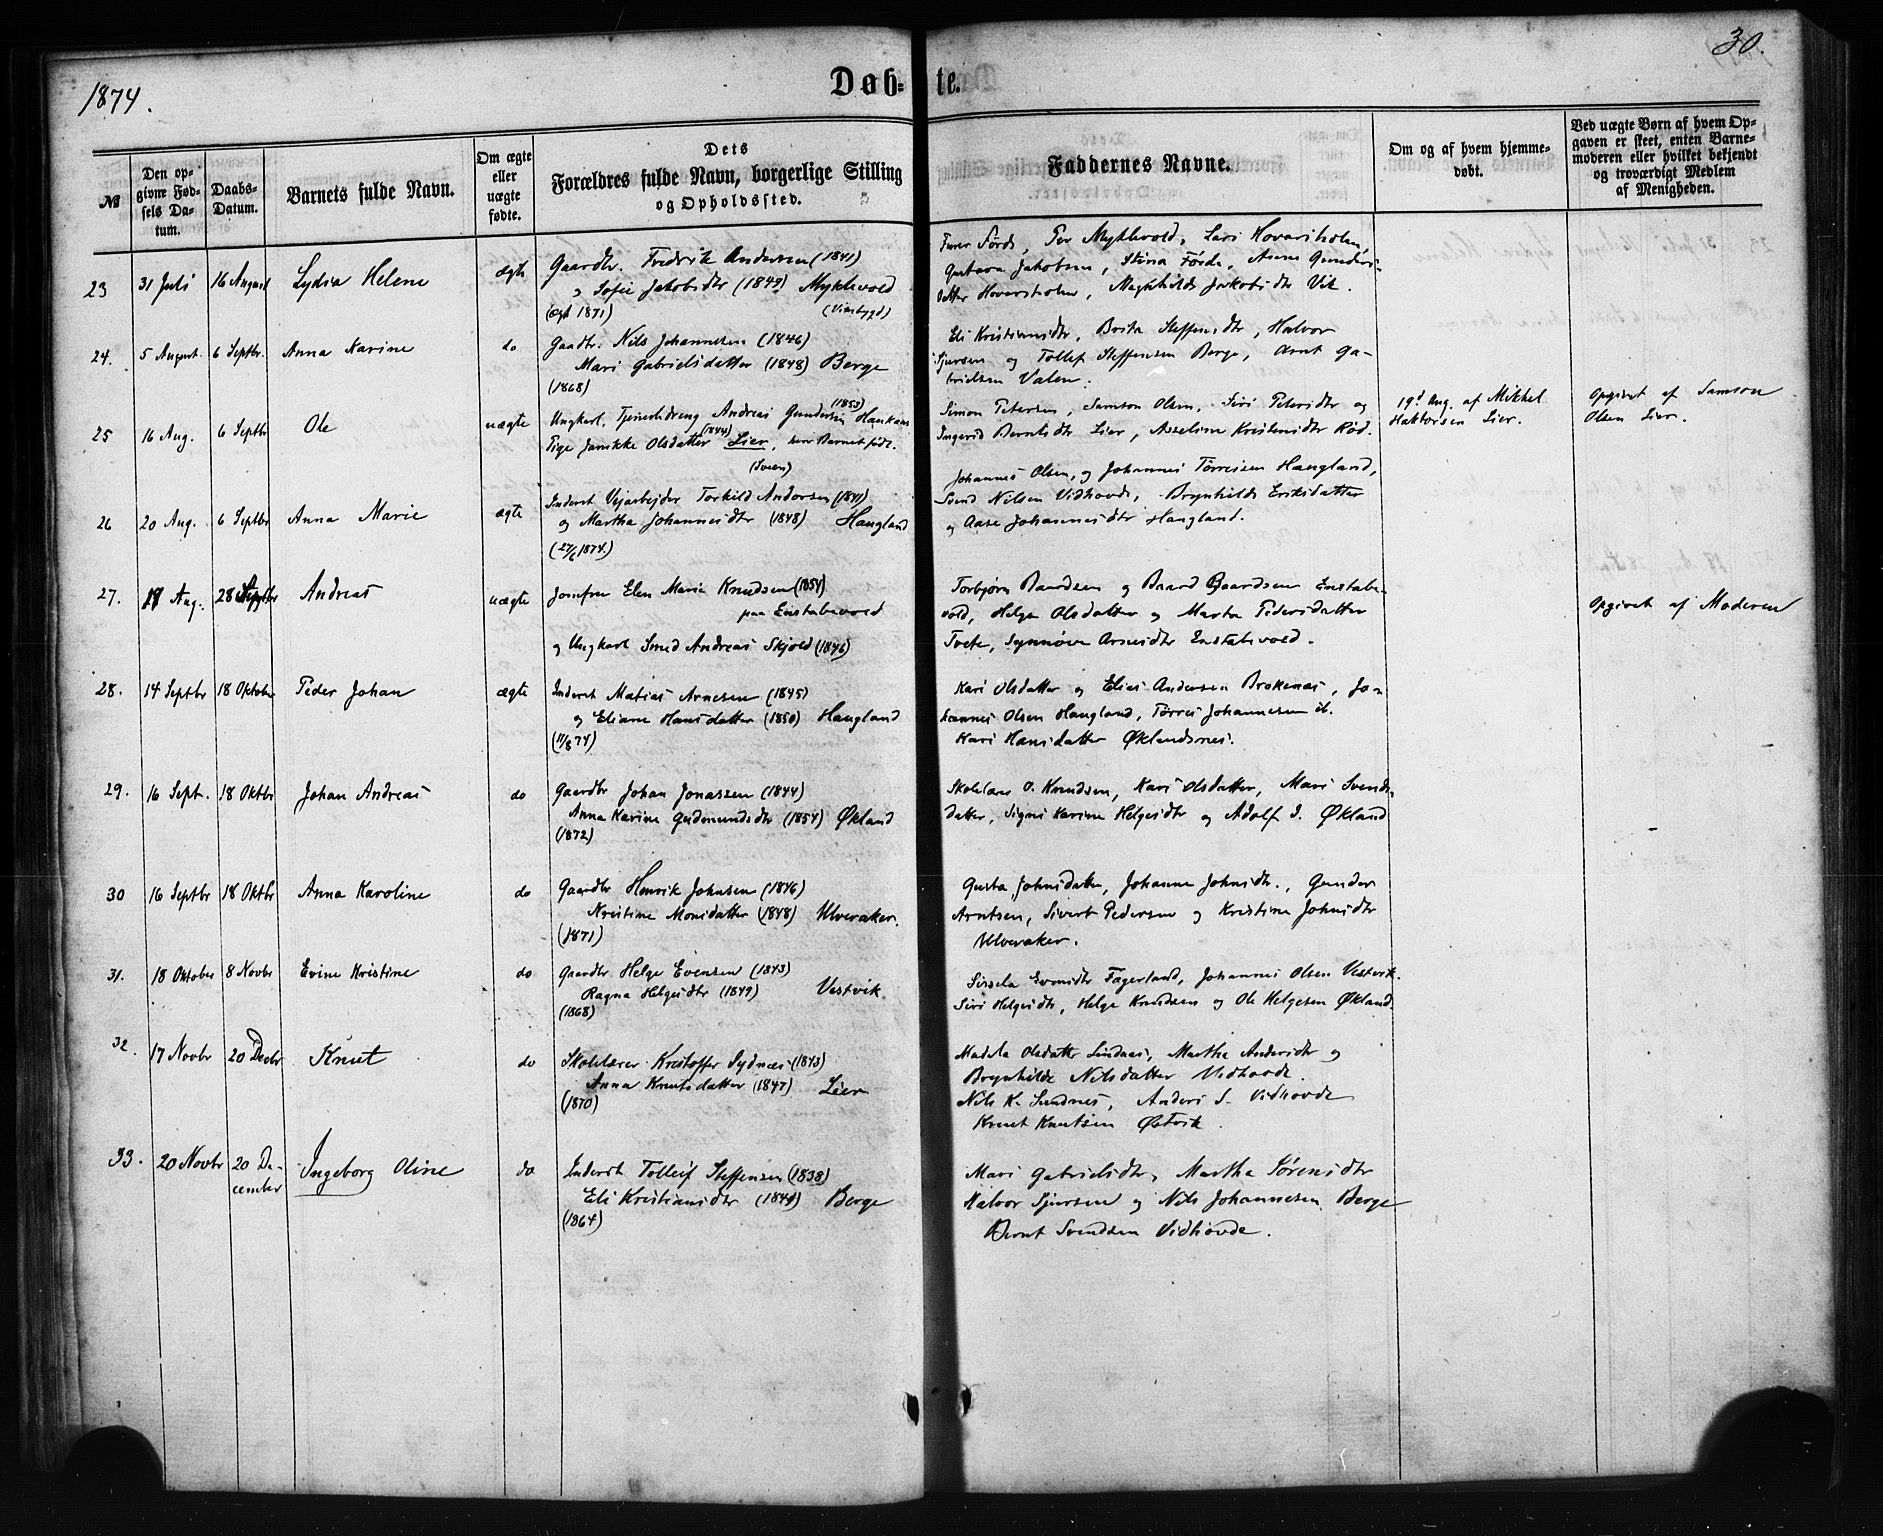 1874.
Døb-te.
30.
№
Den op-
givne Fød-
sels Da-
tum.
Daabs-
Datum.
Barnets fulde Navn.
Om ægte
eller
uægte
fødte.
Dets
Forældres fulde Navn, borgerlige Stilling
og Opholdssted.
Faddernes Navne.
Om og af hvem hjemme-
døbt.
Ved uægte Børn af hvem Op-
gaven er skeet, enten Barne-
moderen eller hvilket bekjendt
og troværdigt Medlem
af Menigheden.
23 31 Juli 16 August Lydia Helene ægte
Gaardbr. Fredrik Andersen (1841)
Sofie Jakobsdtr (1849) Myklevold
(ægt 1871) (Vinsbygd)
Førde, Per Myklevold, Lars Hovarsholm,
Gustava Jakobsen, Stina Førde, Anna Gunders-
datter Hovarsholm, Magnhilde Jakobsdtr Vik.
24. 5 August. 6 Septbr. Anna Karine do
Gaardbr. Nils Johannesen (1846)
Mari Gabrielsdatter (1848) Berge
(1868)
Eli Kristiansdtr, Brita Steffensdtr, Halvor
Sjursen og Tollef Steffensen Berge, Arnt Ga-
brielsen Valen.
25 16 Aug. 6 Septbr Ole uægte
Ungkarl, Tjenestedreng Andreas Gundersen (1853) Haukaas
Pige Jannikke Olsdatter (1844) Lier, hvor Barnet født.
(Sveen)
Simon Petersen, Samson Olsen, Siri Petersdtr og
Ingerid Berntsdtr Lier, Asseline Kristensdtr Rød.
19d Aug. af Mikkel
Haktorsen Lier.
Opgivet af Samson
Olsen Lier.
26 20 Aug. 6 Septbr Anna Marie ægte
Inderst Vejarbejder Torkild Andersen (1841)
og Martha Johannesdtr (1848) Haugland
(27/6 1874.)
Johannes Olsen, og Johannes Tørresen Haugland,
Svend Nilsen Vidhovde, Brynhilde Eriksdatter
og Aase Johannesdtr Haugland.
27. 17 Aug. 28 Septbr Andreas uægte
Jomfru Elen Marie Knudsen (1854)
paa Enstabøvold
og Ungkarl Smed Andreas Skjold (1846)
Torbjørn Baardsen og Baard Baardsen Enstabø-
vold, Helga Olsdatter og Marta Pedersdatter
Tveite, Synnøve Arnesdtr Enstabøvold.
Opgivet af Moderen
28. 14 Septbr 18 Oktober Peder Johan ægte
Inderst Matias Arnesen (1845)
og Eliane Hansdatter (1850) Haugland
(11/8 74)
Kari Olsdatter og Elias Andersen Brokenæs, Jo-
hannes Olsen Haugland, Tørres Johannesen ib.
Kari Hansdatter Øklandsnes.
29. 16 Sept. 18 Oktbr Johan Andreas do
Gaardbr Johan Jonassen (1844)
Anna Karine Gudmundsdtr (1854) Økland
(1872)
Skolelærer O. Knudsen, Kari Olsdatter, Mari Svends-
datter, Signi Karine Helgesdtr og Adolf J. Økland
30 16 Septbr 18 Oktbr Anna Karoline do
Gaardbr Henrik Johnsen (1846)
Kristine Monsdatter (1848) Ulveraker.
(1871)
Gusta Johnsdatter, Johanne Johnsdtr., Gunder
Arntsen, Sivert Pedersen og Kristine Johnsdtr
Ulveraker.
31. 18 Oktober 8 Novbr Evine Kristine do
Gaardbr. Helge Evensen (1843)
Ragna Helgesdtr (1849) Vestvik.
(1868)
Sissela Evensdtr Fagerland, Johannes Olsen Vestvik.
Siri Helgesdtr, Helge Knudsen og Ole Helgesen Økland.
32. 17 Novbr 20 Decbr Knut do
Skolelærer Kristoffer Sydnes (1843)
Anna Knutsdatter (1847) Lier
(1870)
Madela Olsdatter Sundnæs, Martha Andersdtr og
Brynhilde Nilsdatter Vidhovde.
Nils K. Sundnes, Anders S. Vidhovde
Knut Knutsen Østvik.
33. 20 Novbr 20 De-
cember Ingeborg Oline do
Inderst Tolleif Steffensen (1838)
Eli Kristiansdtr (1841) Berge
(1864)
Mari Gabrielsdtr, Martha Sørensdtr
Halvor Sjursen og Nils Johannesen Berge
Bernt Svendsen Vidhovde.